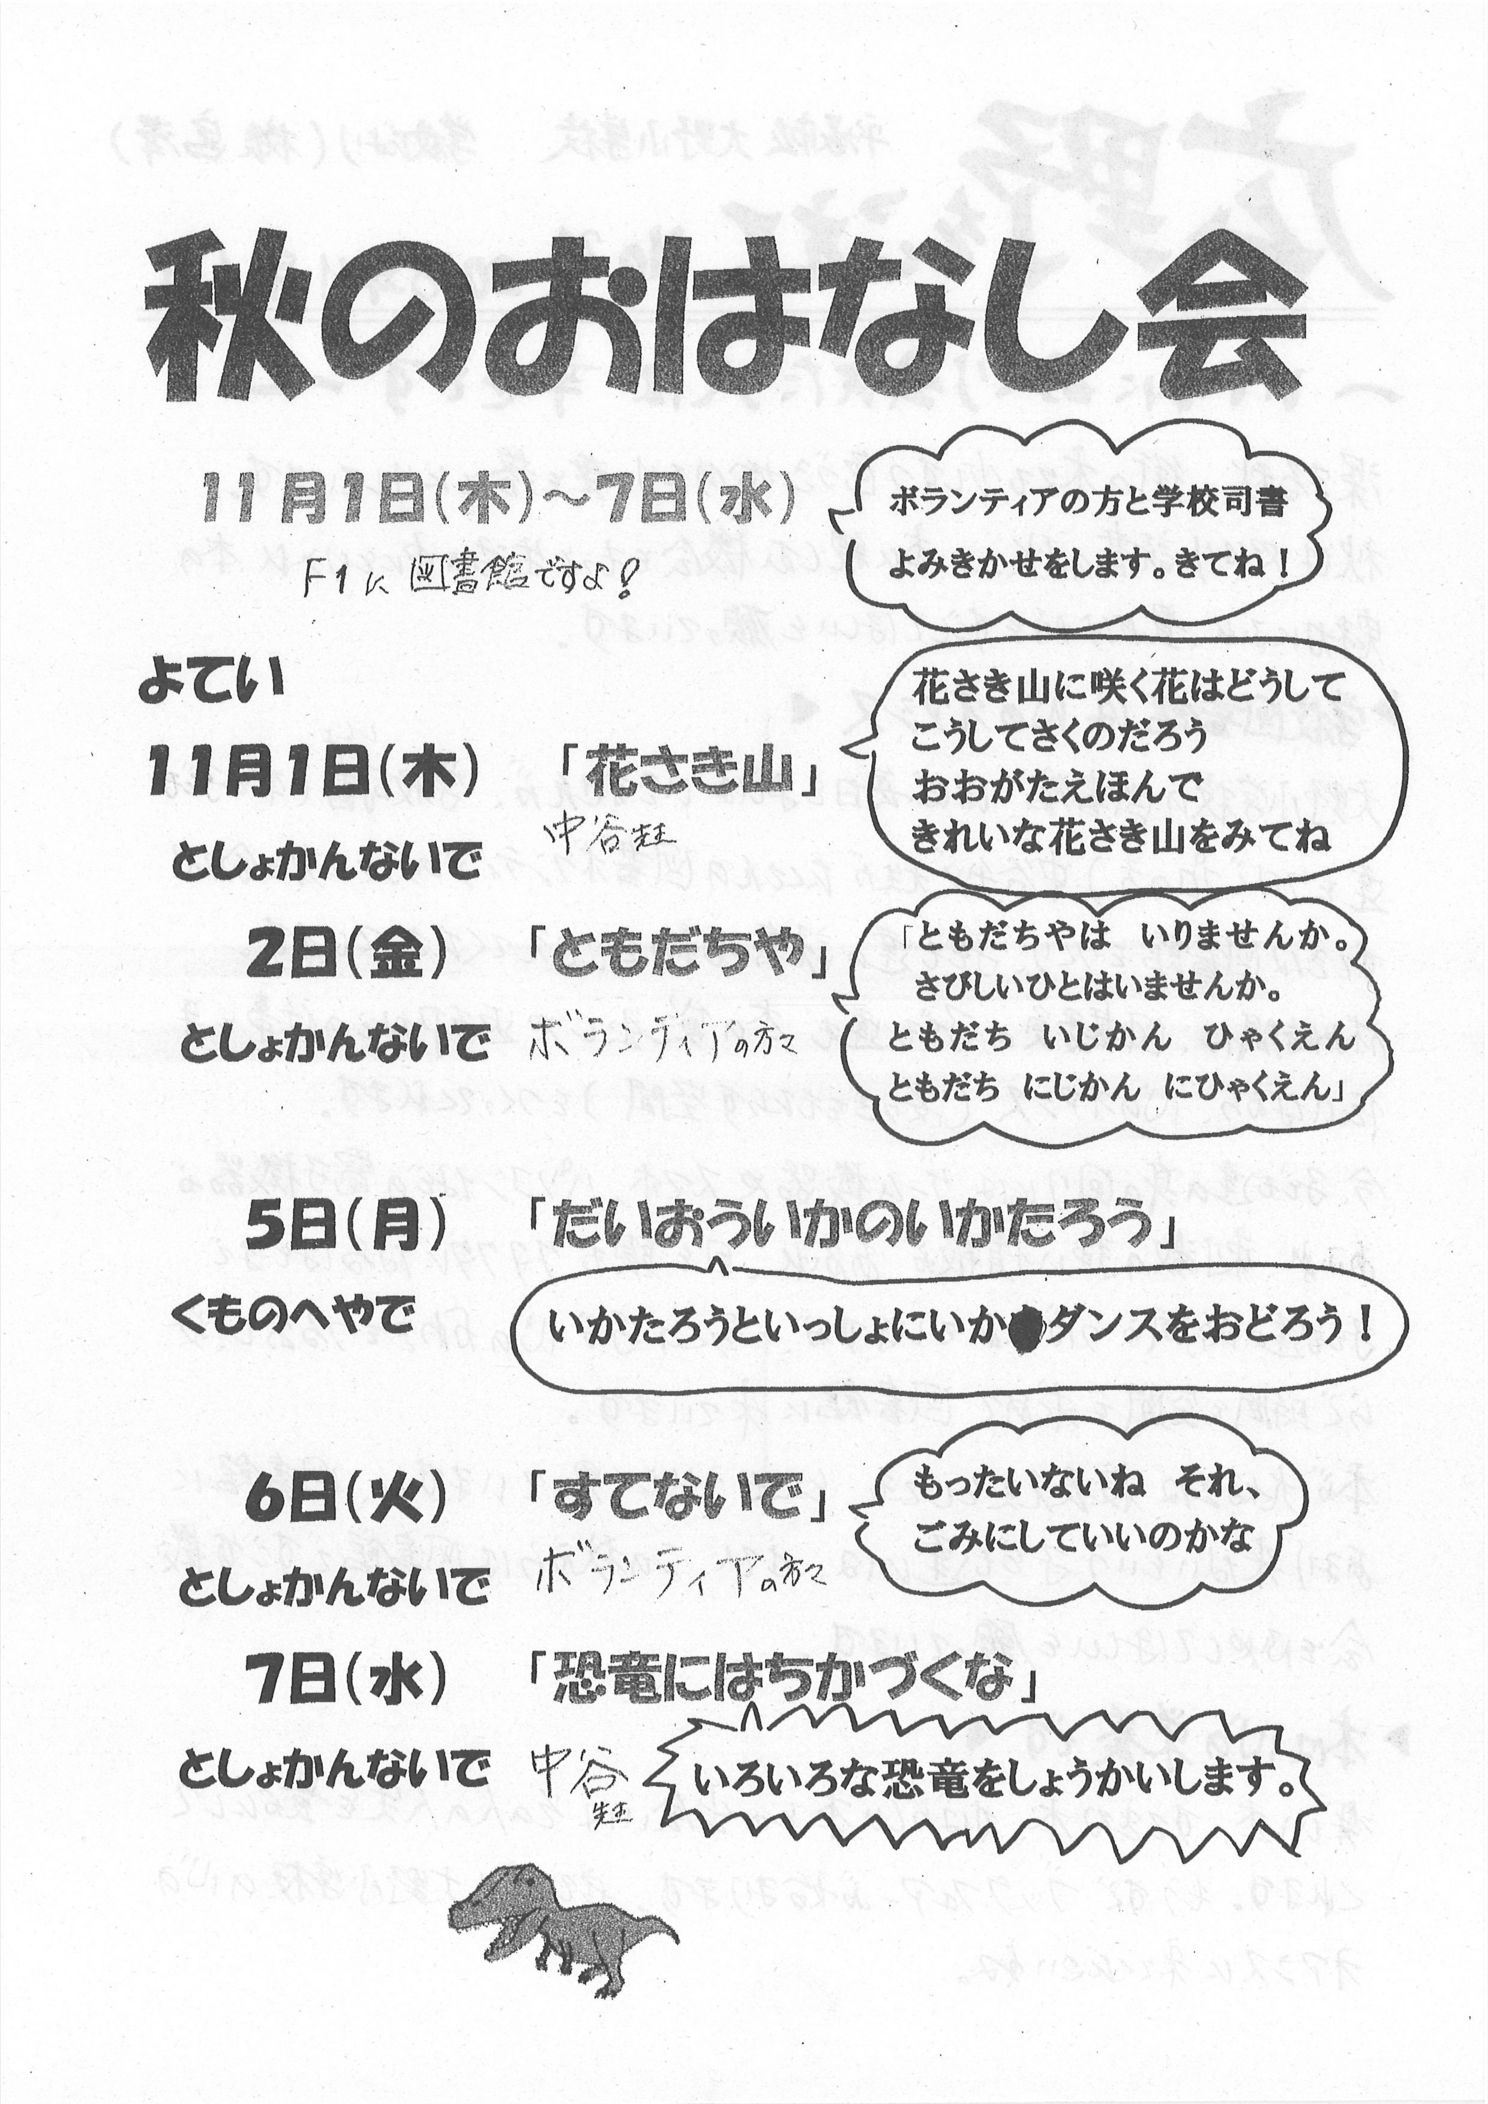 秋のおはなし会
11月1日(木)～7日(水)
ボランティアの方と学校司書
よみきかせをします。きてね！
F1に 図書館ですよ！
よてい
11月1日(木) 「花さき山」
花さき山に咲く花はどうして
こうしてさくのだろう
おおがたえほんで
きれいな花さき山をみてね
中谷先生
としょかんないで
2日(金) 「ともだちや」
「ともだちやは いりませんか。
さびしいひとはいませんか。
ともだち いじかん ひゃくえん
ともだち にじかん にひゃくえん」
としょかんないで ボランティアの方々
5日(月) 「だいおういかのいかたろう」
くものへやで
いかたろうといっしょにいかダンスをおどろう！
6日(火) 「すてないで」
もったいないね それ、
ごみにしていいのかな
としょかんないで ボランティアの方々
7日(水) 「恐竜にはちかづくな」
としょかんないで 中谷先生
いろいろな恐竜をしょうかいします。